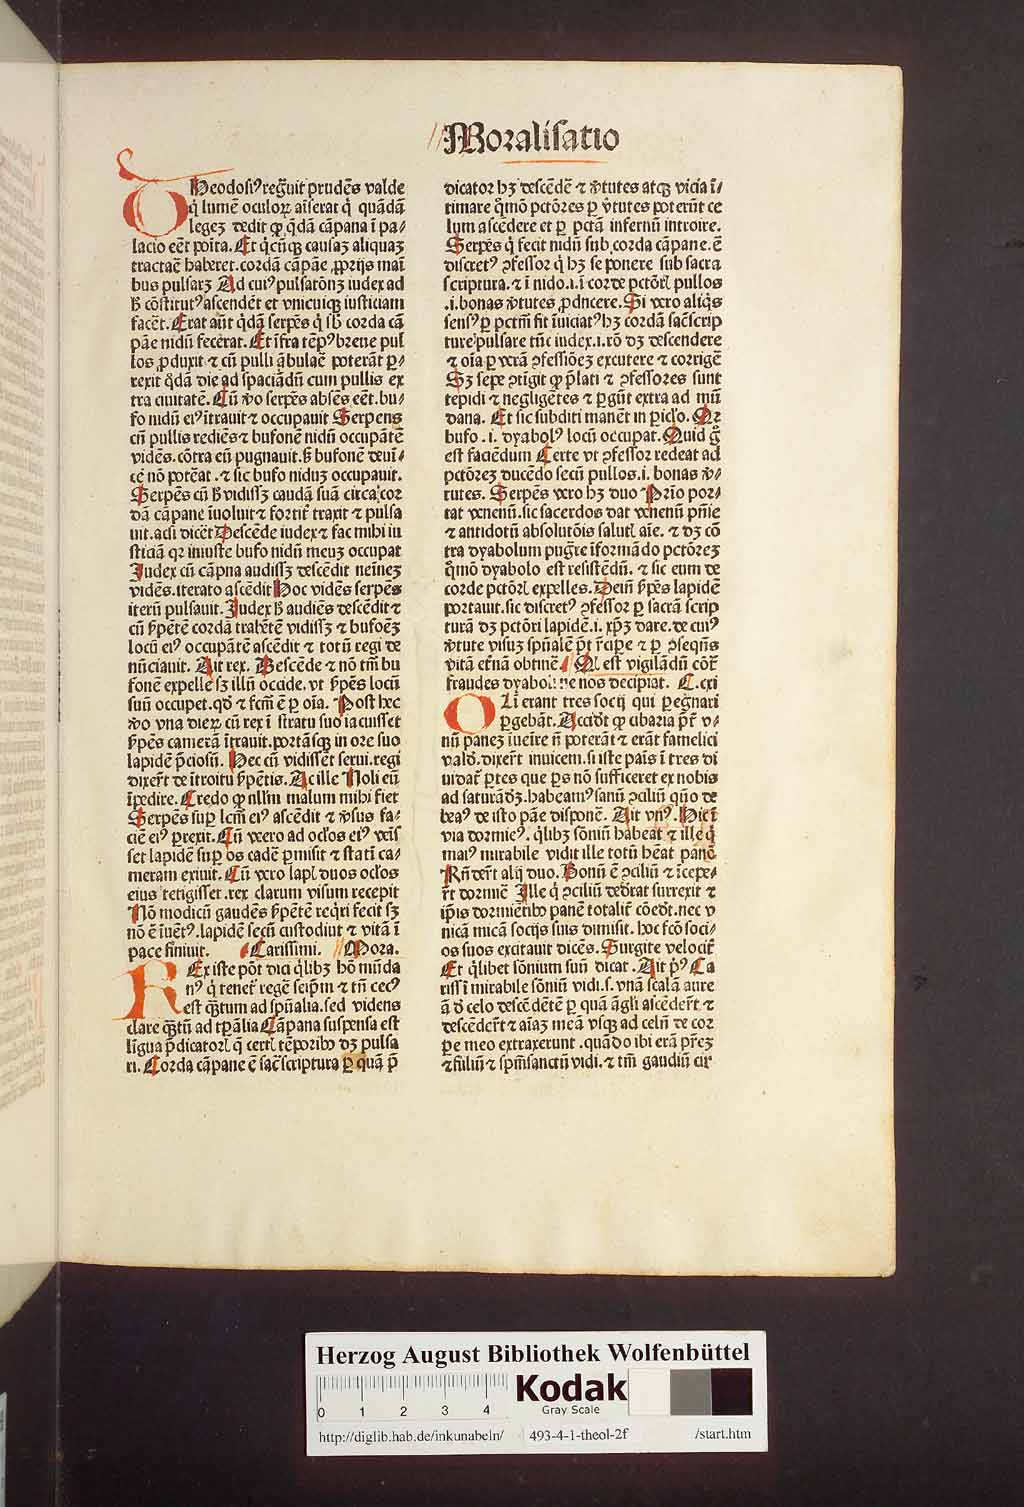 Moralisatio
THeodosi⁹ regͣuit prudēs valde
q̇ lumē oculoꝝ amiserat q̇ quādā
legeꝫ dedit ꝙ q̇dā cāpana ī pa⸗
lacio eēt poīta. Et q̇cūqꝫ causaꝫ aliquaꝫ
tractaē haberet. cordā cāpāe ꝓprijs mai̅
bus pulsarꝫ Ad cui⁹ pulsatōnꝫ iudex ad
ħ cōstitut⁹ ascendēt et vnicuiqꝫ iusticiam
facēt. Erat aūt q̇dā serpēs q̇ sb̄ corda cā
pāe nidū fecerat. Et īfra tēp⁹ breue pul
los ꝓduxit ⁊ cū pulli ābulaē poterāt ꝑ⸗
rexit q̇dā die ad spaciādū cum pullis ex
tra ciuitatē. Cū v̄o serpēs absēs eēt. bu⸗
fo nidū ei⁹ ītrauit ⁊ occupauit Serpens
cū pullis rediēs ⁊ bufonē nidū occupātē
vidēs. cōtra eū pugnauit. s̄ bufonē deuī⸗
cē nō potēat. ⁊ sic bufo niduꝫ occupauit.
Serpēs cū ħ vidissꝫ caudā suā circa cor
dā cāpane īuoluit ⁊ fortit̄ traxit ⁊ pulsa
uit. acsi dicēt Descēde iudex ⁊ fac mihi iu
sticiā qꝛ iniuste bufo nidū meuꝫ occupat
Iudex cū cāpna audissꝫ descēdit neīneꝫ
vidēs. iterato ascēdit Hoc vidēs serpēs
iterū pulsauit. Iudex ħ audiēs descēdit ⁊
cū s̄pētē cordā trahētē vidissꝫ ⁊ bufoēꝫ
locū ei⁹ occupātē ascēdit ⁊ totū regi de
nūciauit. Ait rex. Descēde ⁊ nō tm̄ bu
fonē expelle sꝫ illū occide. vt s̄pēs locū
suū occupet. qd̄ ⁊ fcm̄ ē ꝑ oīa. Post hec
v̄o vna dieꝝ cū rex ī stratu suo iacuisset
s̄pēs camerā ītrauit. portāsqꝫ in ore suo
lapidē p̄ciosū. Hec cū vidissēt serui. regi
dixer̄t de ītroitu s̄pētis. Ac ille Noli eū
īpedire. Credo ꝙ nll'm malum mihi fiet
Serpēs suꝑ lcm̄ ei⁹ ascēdit ⁊ v̄sus fa⸗
ciē ei⁹ ꝑrexit. Cū vero ad ocl'os ei⁹ veīs
set lapidē suꝑ os cadē ꝑmisit ⁊ statī ca⸗
meram exiuit. Cū vero lapl' duos ocl'os
eius tetigisset. rex clarum visum recepit
Nō modicū gaudēs s̄pētē req̇ri fecit sꝫ
nō ē īuēt⁹. lapidē secū custodiuit ⁊ vitā ī
pace finiuit. Carissimi. Mora.
REx iste pōt dici q̇libꝫ hō mūda
n⁹ q̇ tenet̄ regē seip̄m ⁊ tn̄ cec⁹
est qͣtum ad sp̄nalia. sed videns
clare qͣtū ad tꝑalia Cāpana suspensa est
līgua p̄dicatorl' q̄ certl' tēporibꝰ dꝫ pulsa
ri. Corda cāpane ē sac̄ scriptura ꝑ quā p̄
dicator hꝫ descēdē ⁊ v̄tutes atqꝫ vicia ī⸗
timare q̊mō pctōres ꝑ v̄tutes poterūt ce
lum ascēdere et ꝑ pctā infernū introire.
Serpēs q̇ fecit nidū sub corda cāpane. ē
discret⁹ ꝯfessor q̇ hꝫ se ponere sub sacra
scriptura. ⁊ ī nido. i. ī corde pctōrl' pullos
.i. bonas v̄tutes ꝓdncere. Si vero aliq̇s
sens⁹ ꝑ pctm̄ fit īuiciat⁹ hꝫ cordā sac̄ scrip
ture pulsare tūc iudex. i. rō dꝫ descendere
⁊ oīa ꝑ verā ꝯfessiōeꝫ excutere ⁊ corrigē
Sꝫ sepe ꝯtigit ꝙ p̄lati ⁊ ꝯfessores sunt
tepidi ⁊ negligētes ⁊ ꝑgūt extra ad mū
dana. Et sic subditi manēt in ꝑicl'o. Qꝛ
bufo. i. dyabol⁹ locū occupat. Quid g̊
est faciēdum Certe vt ꝯfessor redeat ad
pctōreꝫ ducēdo secū pullos. i. bonas v̄⸗
tutes. Serpēs vero hꝫ duo Prīo por⸗
tat venenū. sic sacerdos dat venenū pn̄ie
⁊ antidotū absolutōis salutl' aīe. ⁊ dꝫ cō
tra dyabolum pug̊re īformādo pctōreꝫ
q̊mō dyabolo est resistēdū. ⁊ sic eum de
corde pctōrl' expelles. Deīn s̄pēs lapidē
portauit. sic discret⁹ ꝯfessor ꝑ sacrā scrip
turā dꝫ pctōri lapidē. i. xp̄ꝫ dare. de cui⁹
v̄tute visuꝫ sp̄ualē p̄t r̄cipe ⁊ ꝑ ꝯseqn̄s
vitā et̄nā obtinē. Ql' est vigilādū cōt̄
fraudes dyaboli ne nos decipiat. C. cxi
OLī erant tres socij qui ꝑeg̊nari
ꝑgebāt. Accid̄t ꝙ cibaria p̄t̄ v⸗
nū paneꝫ iueīre n̄ poterāt ⁊ erāt famelici
vald̄. dixer̄t inuicem. si iste paīs ī tres di
uidat̄ ꝑtes que ꝑs nō sufficeret ex nobis
ad saturād̄ꝫ. habeam⁹ sanū ꝯciliū qn̄o de
beaꝰ de isto pāe disponē. Ait vn⁹. Hic ī
via dormie⁹. q̇libꝫ sōniū habeat ⁊ ille q̇
mai⁹ mirabile vidit ille totū heāt panē
Rn̄der̄t alij duo. Bonū ē ꝯciliū ⁊ īcepe⸗
r̄t dormiē Ille q̇ ꝯciliū ded̄rat surrexit ⁊
ip̄is dormiētibꝰ panē totalit̄ cōedt. nec v
nicā micā socijs suis dimisit. hoc fcō soci⸗
os suos excitauit dicēs. Surgite velocit̄
Et q̇libet sōnium suū dicat. Ait p̄⁹ Ca
riss'ī mirabile sōniū vidi. s. vnā scalā aure
ā d̄ celo descēdētē ꝑ quā āgl'i ascēder̄t ⁊
descēder̄t ⁊ aīaꝫ meā vsqꝫ ad celū de cor
pe meo extraxerunt. quādo ibi erā pr̄eꝫ
⁊ filiū ⁊ sp̄m sanctū vidi. ⁊ tm̄ gaudiū cir
Herzog August Bibliothek Wolfenbüttel
0 1 2 3 4
Kodak
Gray Scale
http://diglib.hab.de/inkunabeln/ 493-4-1-theol-2f /start.htm